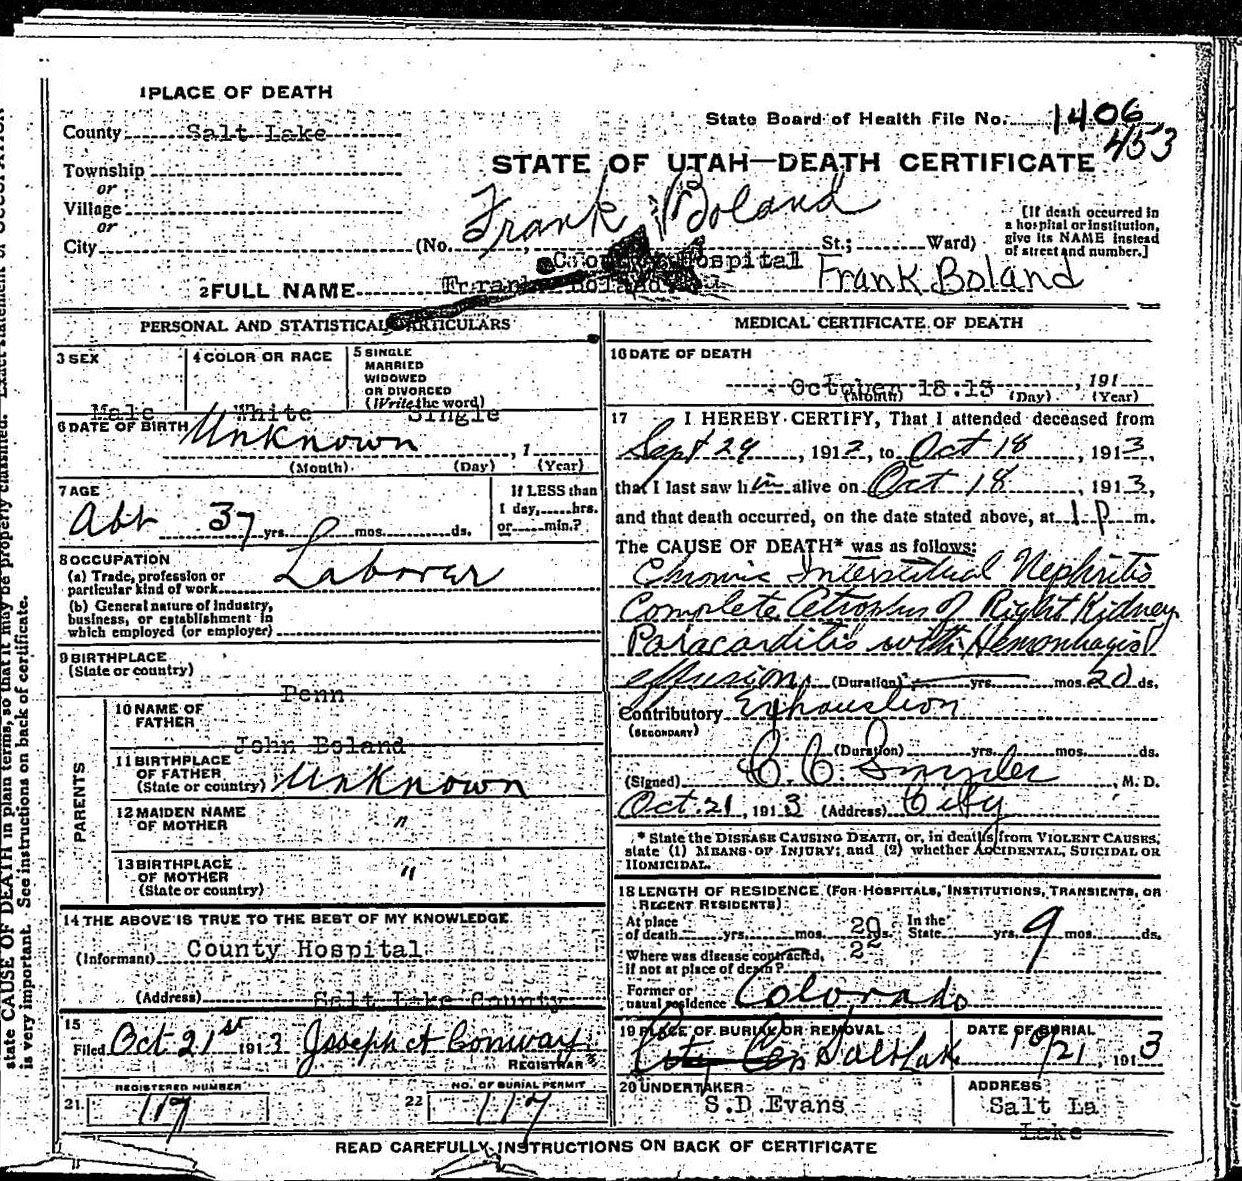 1 PLACE OF DEATH
County Salt Lake
State Board of Health File No. 1406
453
Township
or
Village
or
STATE OF UTAH—DEATH CERTIFICATE
Frank Boland
City (No. St.; Ward)
[If death occurred in
a hospital or institution,
give its NAME instead
of street and number.]
County Hospital
2 FULL NAME Frank Boland Frank Boland
PERSONAL AND STATISTICAL PARTICULARS
3 SEX
Male
4 COLOR OR RACE
White
5 SINGLE
MARRIED
WIDOWED
OR DIVORCED
(Write the word)
Single
6 DATE OF BIRTH Unknown , 1
(Month) (Day) (Year)
7 AGE
Abt 37 yrs. mos. ds.
If LESS than
1 day, hrs.
or min.?
8 OCCUPATION
(a) Trade, profession or
particular kind of work Laborer
(b) General nature of Industry,
business, or establishment in
which employed (or employer)
9 BIRTHPLACE
(State or country)
Penn
PARENTS
10 NAME OF
FATHER
John Boland
11 BIRTHPLACE
OF FATHER
(State or country) Unknown
12 MAIDEN NAME
OF MOTHER "
13 BIRTHPLACE
OF MOTHER "
(State or country)
14 THE ABOVE IS TRUE TO THE BEST OF MY KNOWLEDGE
(Informant) County Hospital
(Address) Salt Lake County
15
Filed Oct 21st 1913 Joseph A Conway
REGISTRAR
REGISTERED NUMBER
21. 117
NO. OF BURIAL PERMIT
22 117
MEDICAL CERTIFICATE OF DEATH
16 DATE OF DEATH
October 18.13 , 191
(Month) (Day) (Year)
17 I HEREBY CERTIFY, That I attended deceased from
Sept 29 , 1913, to Oct 18 , 1913,
that I last saw him alive on Oct 18 , 1913,
and that death occurred, on the date stated above, at 1 P m.
The CAUSE OF DEATH* was as follows:
Chronic Interstitial Nephritis
Complete Atrophy of Right Kidney
Paracarditis with Hemorrhagic
effusion (Duration) yrs. mos. 20 ds.
Contributory Exhaustion
(SECONDARY)
(Duration) yrs. mos. ds.
(Signed) C. C. Snyder , M. D.
Oct. 21 , 1913 (Address) City
* State the DISEASE CAUSING DEATH, or, in deaths from VIOLENT CAUSES,
state (1) MEANS OF INJURY; and (2) whether ACCIDENTAL, SUICIDAL OR
HOMICIDAL.
18 LENGTH OF RESIDENCE (FOR HOSPITALS, INSTITUTIONS, TRANSIENTS, OR
RECENT RESIDENTS)
At place
of death yrs. mos. 20 ds. In the
State yrs. 9 mos. ds.
22
Where was disease contracted,
if not at place of death?
Former or
usual residence Colorado
19 PLACE OF BURIAL OR REMOVAL
City Cem Salt Lak
DATE OF BURIAL
10/21 , 1913
20 UNDERTAKER
S.D.Evans
ADDRESS
Salt La
Lake
READ CAREFULLY INSTRUCTIONS ON BACK OF CERTIFICATE
state CAUSE OF DEATH in plain terms, so that it may be properly classified. Exact statement of OCCUPATION
is very important. See instructions on back of certificate.